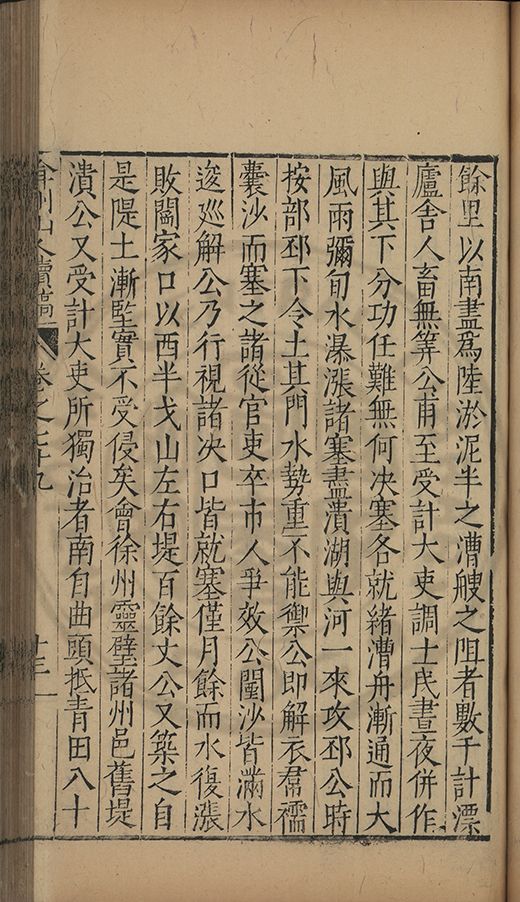 餘里以南盡為陸淤泥半之漕艘之阻者數千計漂
廬舍人畜無筭公甫至受計大吏調士民晝夜併作
與其下分功任難無何決塞各就緒漕舟漸通而大
風雨彌旬水瀑漲諸塞盡潰湖與河一來攻邳公時
按部邳下令土其門水勢重不能禦公即解衣帬襦
囊沙而塞之諸從官吏卒市人爭效公闉沙皆滿水
逡巡解公乃行視諸決口皆就塞僅月餘而水復漲
敗閻家口以西半戈山左右堤百餘丈公又築之自
是隄土漸堅實不受侵矣會徐州靈璧諸州邑舊堤
潰公又受計大吏所獨治者南自曲頭抵青田八十
弇州山人續稿 卷之七十九 十三